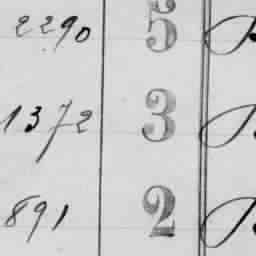 2290 5 B
1372 3 B
891 2 B